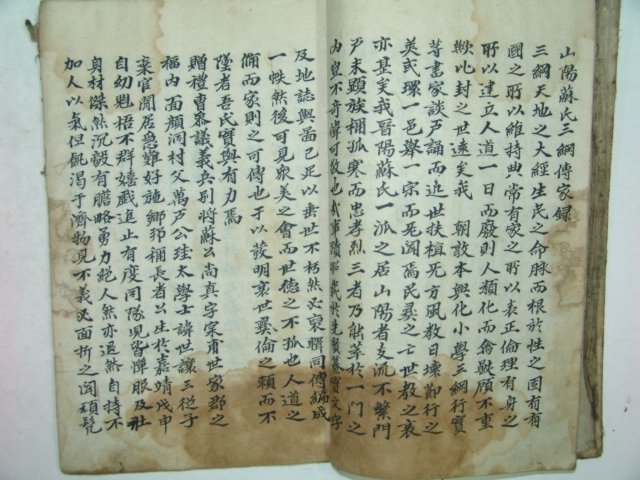 山陽蘇氏三綱傳家錄
三綱天地之大經生民之命脉而根於性之固有有
國之所以維持典常有家之所以表正倫理有身之
所以建立人道一日而廢則人類化而禽獸顧不重
歟比封之世遠矣我 朝敦本興化小學三綱行實
等書家談戶誦而近世扶植死方風敎日壞節行之
美或環一邑擧一宗而死聞焉民彛之亡世敎之衰
亦甚矣我晉陽蘇氏一派之居山陽者支流不繁門
戶未顯族稱孤寒而忠孝烈三者乃能萃於一門之
內豈不奇偉可敬也哉事蹟
及地誌輿圖已足以垂世不朽然必裒輯同傳編成
一帙然後可見衆美之會而世德之不孤也人道之
備而家則之可傳也于以發明衷世彛倫之賴而不
墜者吾氏實與有力焉
贈禮曹叅議義兵別將蘇公尙眞字實甫世家郡之
福內面顔洞村父萬戶公珪太學士諱世讓三從子
棄官閒居急難好施鄕邦稱長者公生於嘉靖戊申
自幼魁梧不群嬉戱進止有度同隊視皆憚服及壯
身材傑然沉毅有膽略勇力絶人然亦退然自持不
加人以氣但飢渴于濟物見不義必面折之閭頑髡